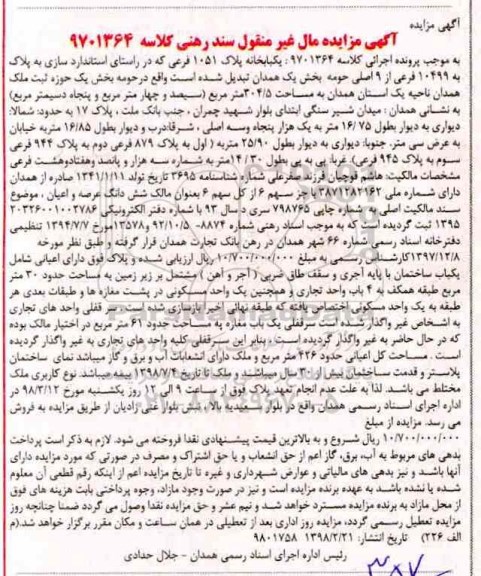 آگهی مزایده
آگهی مزایده مال غیر منقول سند رهنی کلاسه ۹۷۰۱۳۶۴
به موجب پرونده اجرائی کلاسه ۹۷۰۱۳۶۴ : یکبابخانه پلاک ۱۰۵۱ فرعی که در راستای استاندارد سازی به پلاک
۱۰۴۹۹ فرعی از ۹ اصلی حومه بخش یک همدان تبدیل شده است واقع درحومه بخش یک حوزه ثبت ملک
همدان ناحیه یک استان همدان به مساحت ۳۰۴/۵متر مربع (سیصد و چهار متر مربع و پنجاه دسیمتر مربع)
به نشانی همدان : میدان شیر سنگی ابتدای بلوار شهید چمران ، جنب بانک ملت ، پلاک ۱۷ به حدود: شمالا:
دیواری به دیوار بطول ۱۶/۷۵ متر به یک هزار پنجاه وسه اصلی ، شرقا:درب و دیوار بطول ۱۶/۸۵ متربه خیابان
به عرض سی متر، جنوبا: دیواری به دیوار بطول ۲۵/۹۰ متربه ( اول به پلاک ۸۷۹ فرعی دوم به پلاک ۹۴۴ فرعی
سوم به پلاک ۹۴۵ فرعی)، غربا: پی به پی بطول ۱۴/۳۰متر به شماره سه هزار و پانصد وهفتادوهشت فرعی
مشخصات مالکیت: هاشم قوچیان فرزند صفرعلی شماره شناسنامه ۳۶۹۵ تاریخ تولد ۱۳۴۱/۱/۱۱ صادره از همدان
دارای شماره ملی ۳۸۷۱۲۸۲۱۶۲ با جز سهم ۶ از کل سهم ۶ بعنوان مالک شش دانگ عرصه و اعیان ، موضوع
سند مالکیت اصلی به شماره چاپی ۷۹۸۷۶۵ سری د سال ۹۳ با شماره دفتر الکترونیکی ۲۰۳۲۶۰۰۱۰۰۲۷۸۶
۱۳۹۵ ثبت گردیده است که به موجب اسناد رهنی شماره ۸۸۷۴- ۹۲/۱۰/۵ و۱۳۵۷۸مورخ ۱۳۹۴/۷/۷ تنظیمی
دفترخانه اسناد رسمی شماره ۶۶ شهر همدان در رهن بانک تجارت همدان قرار گرفته و طبق نظر مورخه
۱۳۹۷/۱۲/۸کارشناس رسمی به مبلغ ۱۰/۷۰۰/۰۰۰/۰۰۰ ریال ارزیابی شده و پلاک فوق دارای اعیانی شامل
یکباب ساختمان با پایه آجری و سقف طاق ضربی ( آجر و آهن ) مشتمل بر زیر زمین به مساحت حدود ۳۰ متر
مربع طبقه همکف به ۴ باب واحد تجاری و همچنین یک واحد مسکونی در پشت مغازه ها و طبقات بعدی هر
طبقه به یک واحد مسکونی اختصاص یافته که طبقه نهائی اخیر بازسازی شده است قفلی واحد های تجاری
به اشخاص غیر واگذار شده است سرقفلی یک باب مغازه به مساحت حدود ۶۱ متر مربع در اختیار مالک بوده
که در حال حاضر به غیر واگذار گردیده است . بنابر این سرقفلی کلیه واحد های تجاری به غیر واگذار گردیده
است . مساحت کل اعیانی حدود ۴۲۶ متر مربع و ملک دارای انشعابات آب و برق و گاز میباشد نمای ساختمان
پلاستر و قدمت ساختمان بیش از ۳۰ سال میباشند و ملک تا تاریخ ۱۳۹۸/۷/۶ بیمه میباشد. نوع کاربری ملک
مختلط می باشد. لذا به علت عدم انجام تعهد پلاک فوق از ساعت ۹ الی ۱۲ روز یکشنبه مورخ ۹۸/۳/۱۲ در
اداره اجرای اسناد رسمی همدان واقع در بلوار سعیدیه بالا، نبش بلوار غنی زادیان از طریق مزایده به فروش
می رسد. مزایده از مبلغ
۱۰/۷۰۰/۰۰۰/۰۰۰ ریال شروع و به بالاترین قیمت پیشنهادی نقدا فروخته می شود. لازم به ذکر است پرداخت
بدهی های مربوط به آب، برق، گاز اعم از حق انشعاب و یا حق اشتراک و مصرف در صورتی که مورد مزایده دارای
آنها باشد و نیز بدهی های مالیاتی و عوارض شهرداری و غیره تا تاریخ مزایده اعم از اینکه رقم قطعی آن معلوم
شده یا نشده باشد به عهده برنده مزایده است و نیز در صورت وجود مازاد، وجوه پرداختی بابت هزینه های فوق
از محل مازاد به برنده مزایده مسترد خواهد شد و نیم عشر و حق مزایده نقدا وصول می گردد ضمنا چنانچه روز
مزایده تعطیل رسمی گردد، مزایده روز اداری بعد از تعطیلی در همان ساعت و مکان مقرر برگزار خواهد شد.(م
الف ۲۲۶) تاریخ انتشار: ۱۳۹۸/۲/۲۱ ۹۸۰۱۷۵۸
رئیس اداره اجرای اسناد رسمی همدان - جلال حدادی
۳۸۷